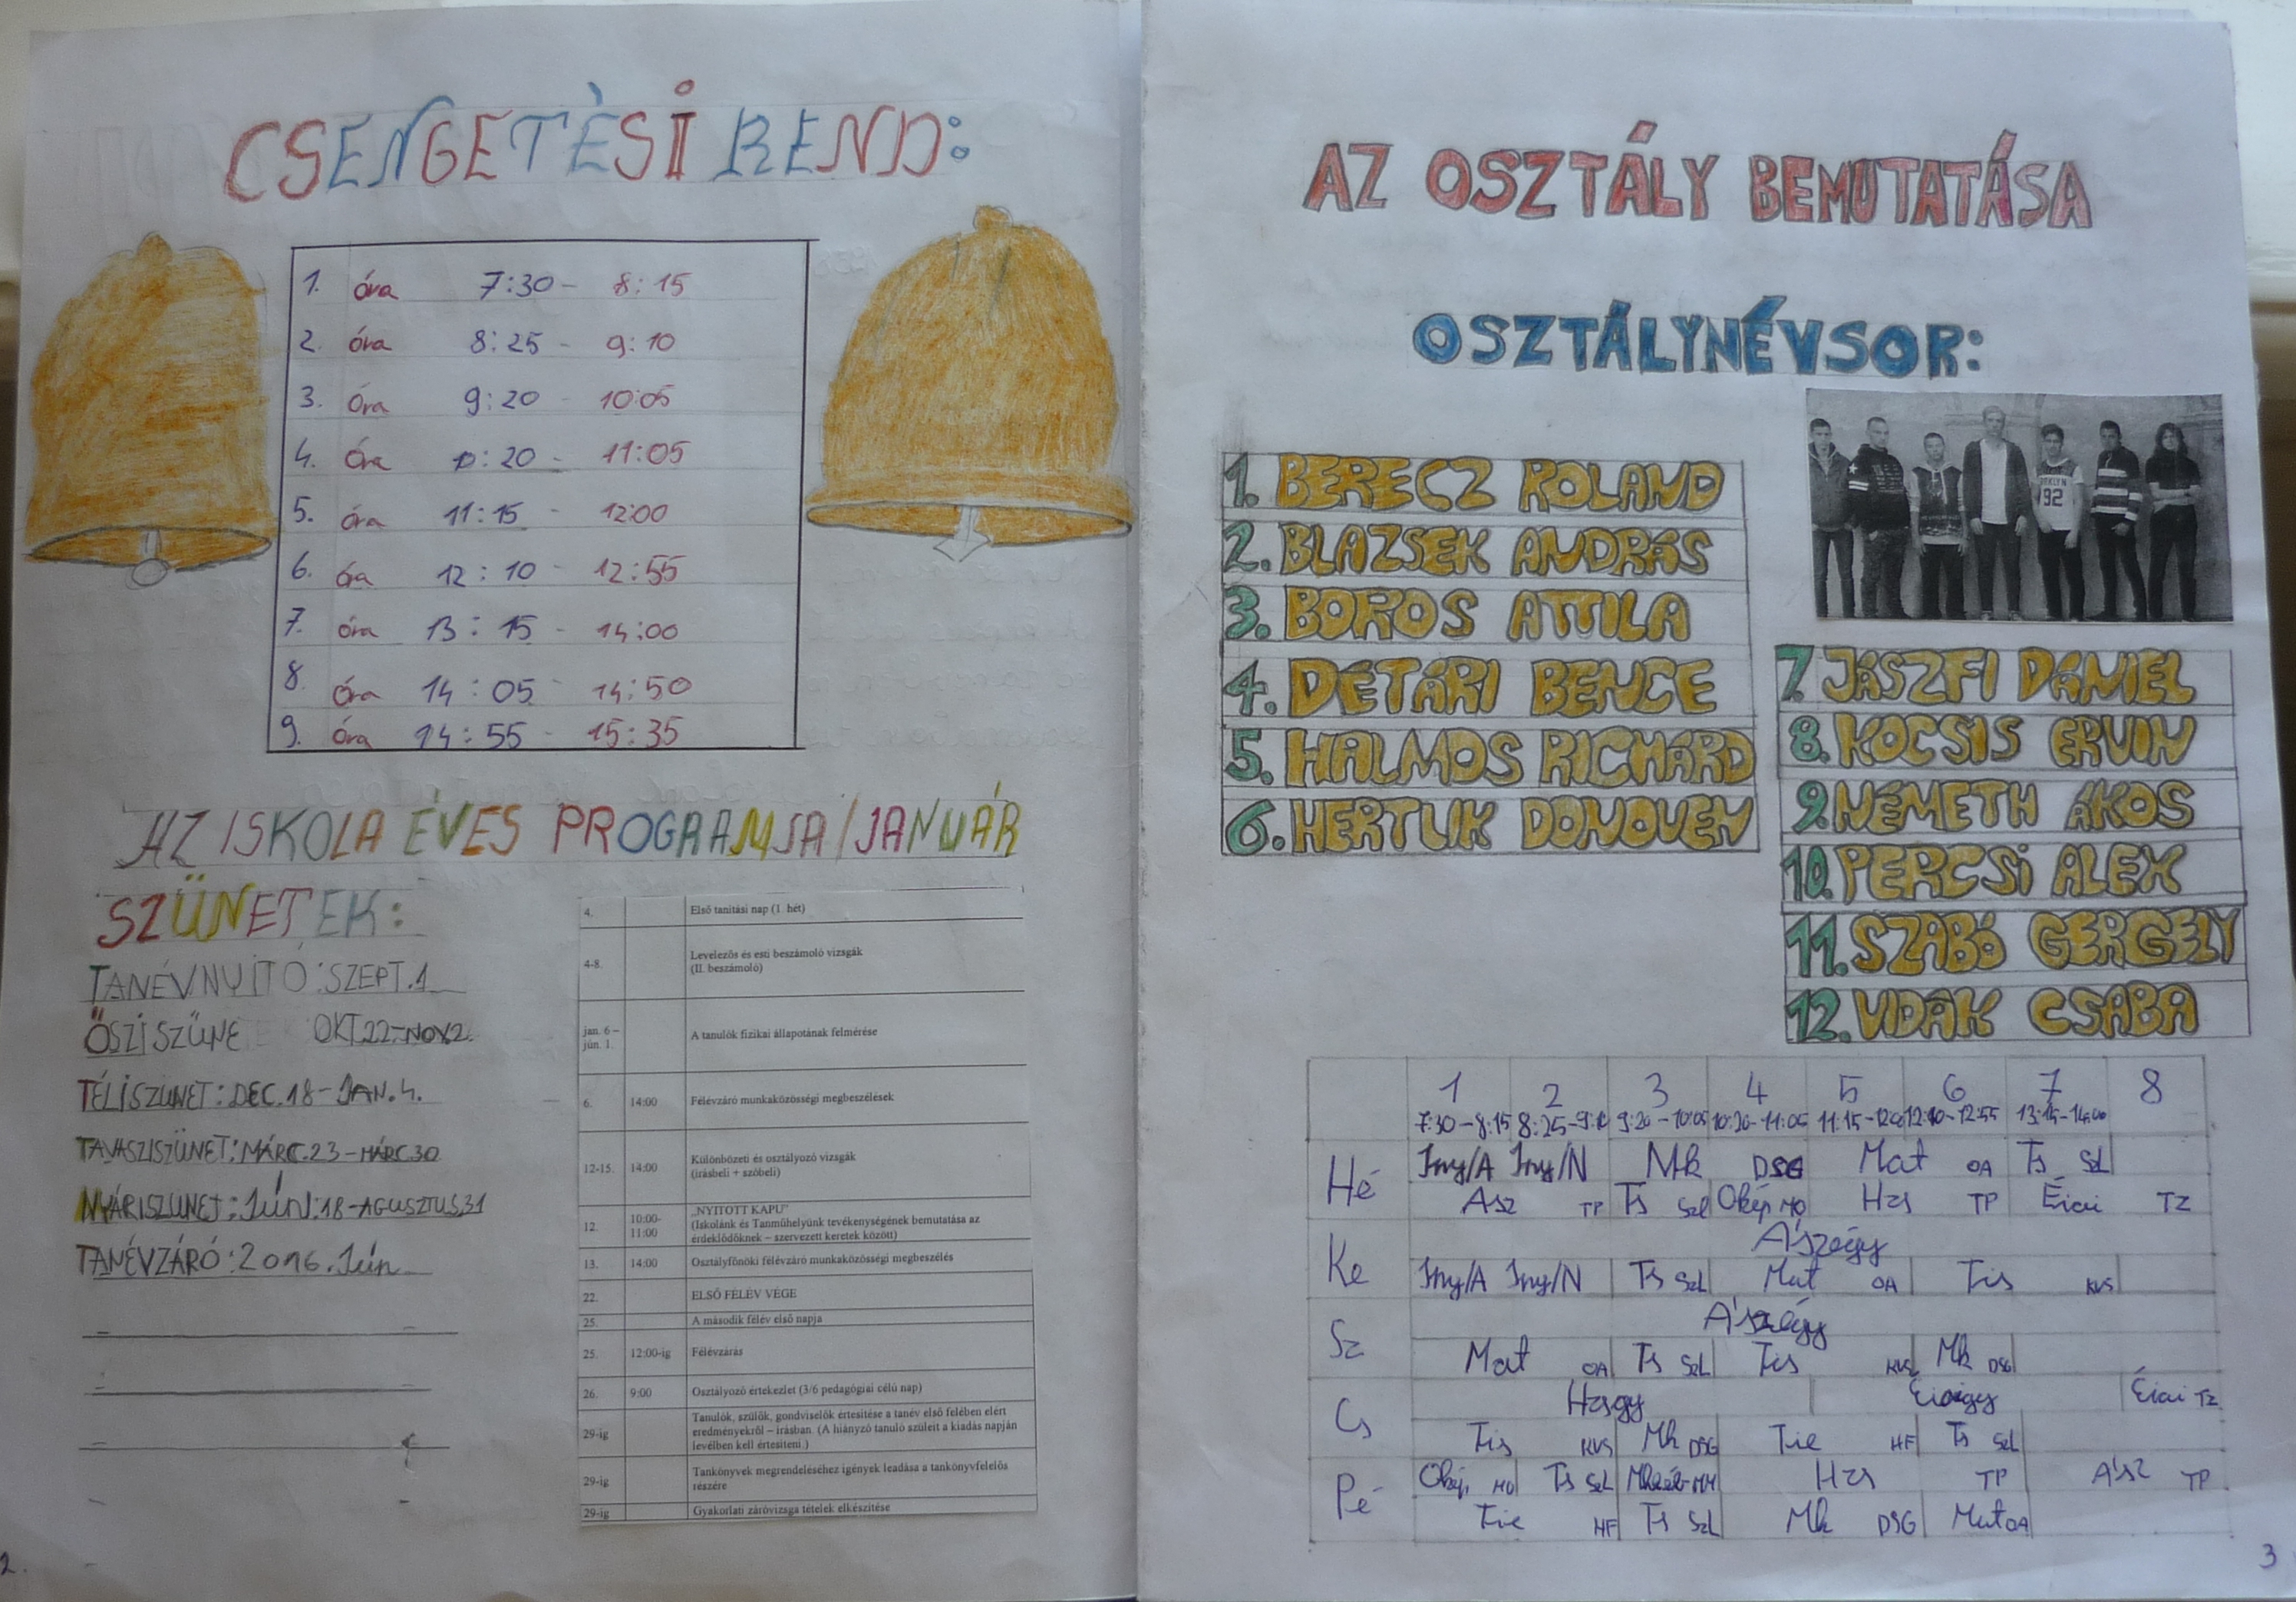 CSENGETÈSI REND:
1. óra 7:30 - 8:15
2. óra 8:25 - 9:10
3. óra 9:20 - 10:05
4. óra 10:20 - 11:05
5. óra 11:15 - 12:00
6. óra 12:10 - 12:55
7. óra 13:15 - 14:00
8. óra 14:05 - 14:50
9. óra 14:55 - 15:35
AZ ISKOLA ÉVES PROGRAMJA/JANUÁR
SZÜNETEK:
TANÉVNYITÓ: SZEPT.1
ŐSZISZÜNE OKT.22-NOV.2.
TÉLISZÜNET: DEC.18-JAN.4.
TAVASZISZÜNET: MÁRC.23-MÁRC.30
NYÁRISZÜNET: JÚNI.18-AGUSZTUS.31
TANÉVZÁRÓ: 2016. Jún.
4. Első tanítási nap (1. hét)
4-8. Levelezős és esti beszámoló vizsgák
(II. beszámoló)
jan. 6 –
jún. 1. A tanulók fizikai állapotának felmérése
6. 14:00 Félévzáró munkaközösségi megbeszélések
12-15. 14:00 Különbözeti és osztályozó vizsgák
(írásbeli + szóbeli)
12. 10:00-
11:00 „NYITOTT KAPU"
(Iskolánk és Tanműhelyünk tevékenységének bemutatása az
érdeklődőknek – szervezett keretek között)
13. 14:00 Osztályfőnöki félévzáró munkaközösségi megbeszélés
22. ELSŐ FÉLÉV VÉGE
25. A második félév első napja
25. 12:00-ig Félévzárás
26. 9:00 Osztályozó értekezlet (3/6 pedagógiai célú nap)
29-ig Tanulók, szülők, gondviselők értesítése a tanév első felében elért
eredményekről – írásban. (A hiányzó tanuló szüleit a kiadás napján
levélben kell értesíteni.)
29-ig Tankönyvek megrendeléséhez igények leadása a tankönyvfelelős
részére
29-ig Gyakorlati záróvizsga tételek elkészítése
2.
AZ OSZTÁLY BEMUTATÁSA
OSZTÁLYNÉVSOR:
1. BERECZ ROLAND
2. BLAZSEK ANDRÁS
3. BOROS ATTILA
4. DÉTÁRI BENCE
5. HALMOS RICHÁRD
6. HERTLIK DONOVEN
92
7. JÁSZFI DÁNIEL
8. KOCSIS ERVIN
9. NÉMETH ÁKOS
10. PERCSI ALEX
11. SZABÓ GERGELY
12. VIDÁK CSABA
1 2 3 4 5 6 7 8
7:30-8:15 8:25-9:10 9:20-10:05 10:20-11:05 11:15-12:00 12:10-12:55 13:15-14:00
Hé Iny/A Iny/N Mk DSG Mat OA Ts SzL
Asz TP Ts SzL Okép MO Hzs TP Éici TZ
Ke Ászégy
Iny/A Iny/N Ts SzL Mat OA Tis KVS
Sz Ászégy
Mat OA Ts SzL Tis KVS Mk DSG
Cs Hzsgy Éici TZ
Tis KVS Mk DSG Tie HF Ts SzL
Pé Okép MO Ts SzL Hzs TP Ász TP
Tie HF Ts SzL Mk DSG Mat OA
3